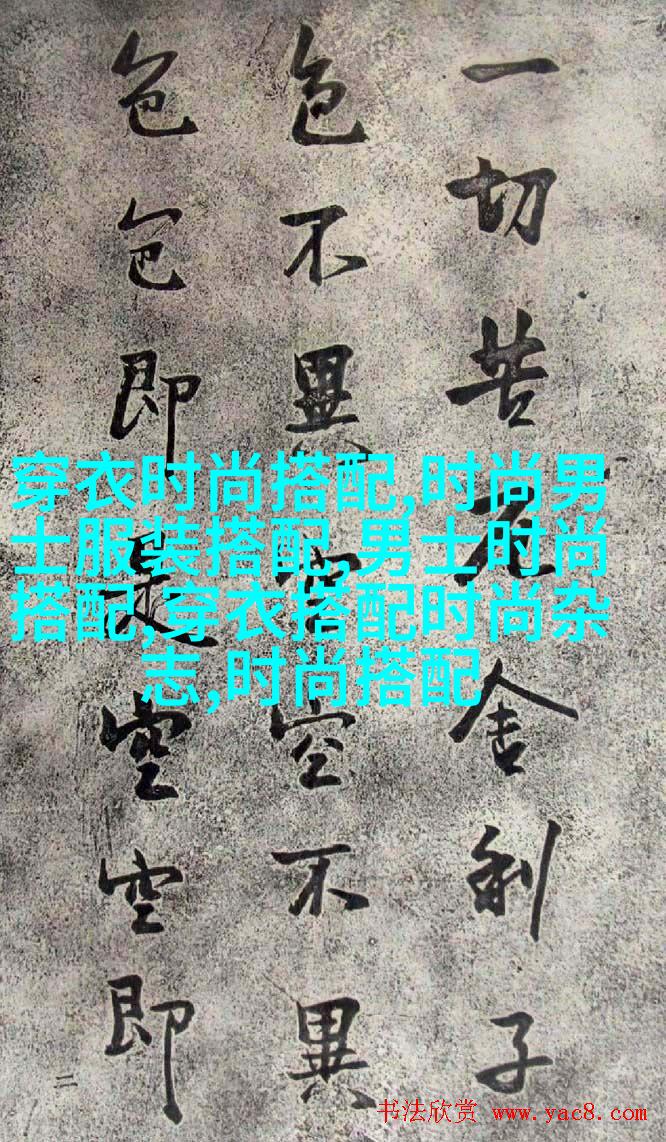 一切苦厄舍利子
色不異空空不異
色色即是空空即
二
穿衣时尚搭配,时尚男
士服装搭配,男士时尚
搭配,穿衣搭配时尚杂
志,时尚搭配
书法欣赏 www.yac8.com